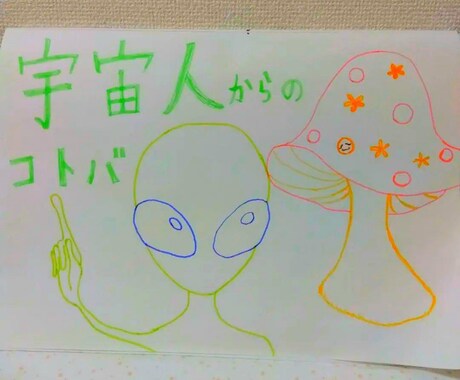 宇宙人からの
コトバ